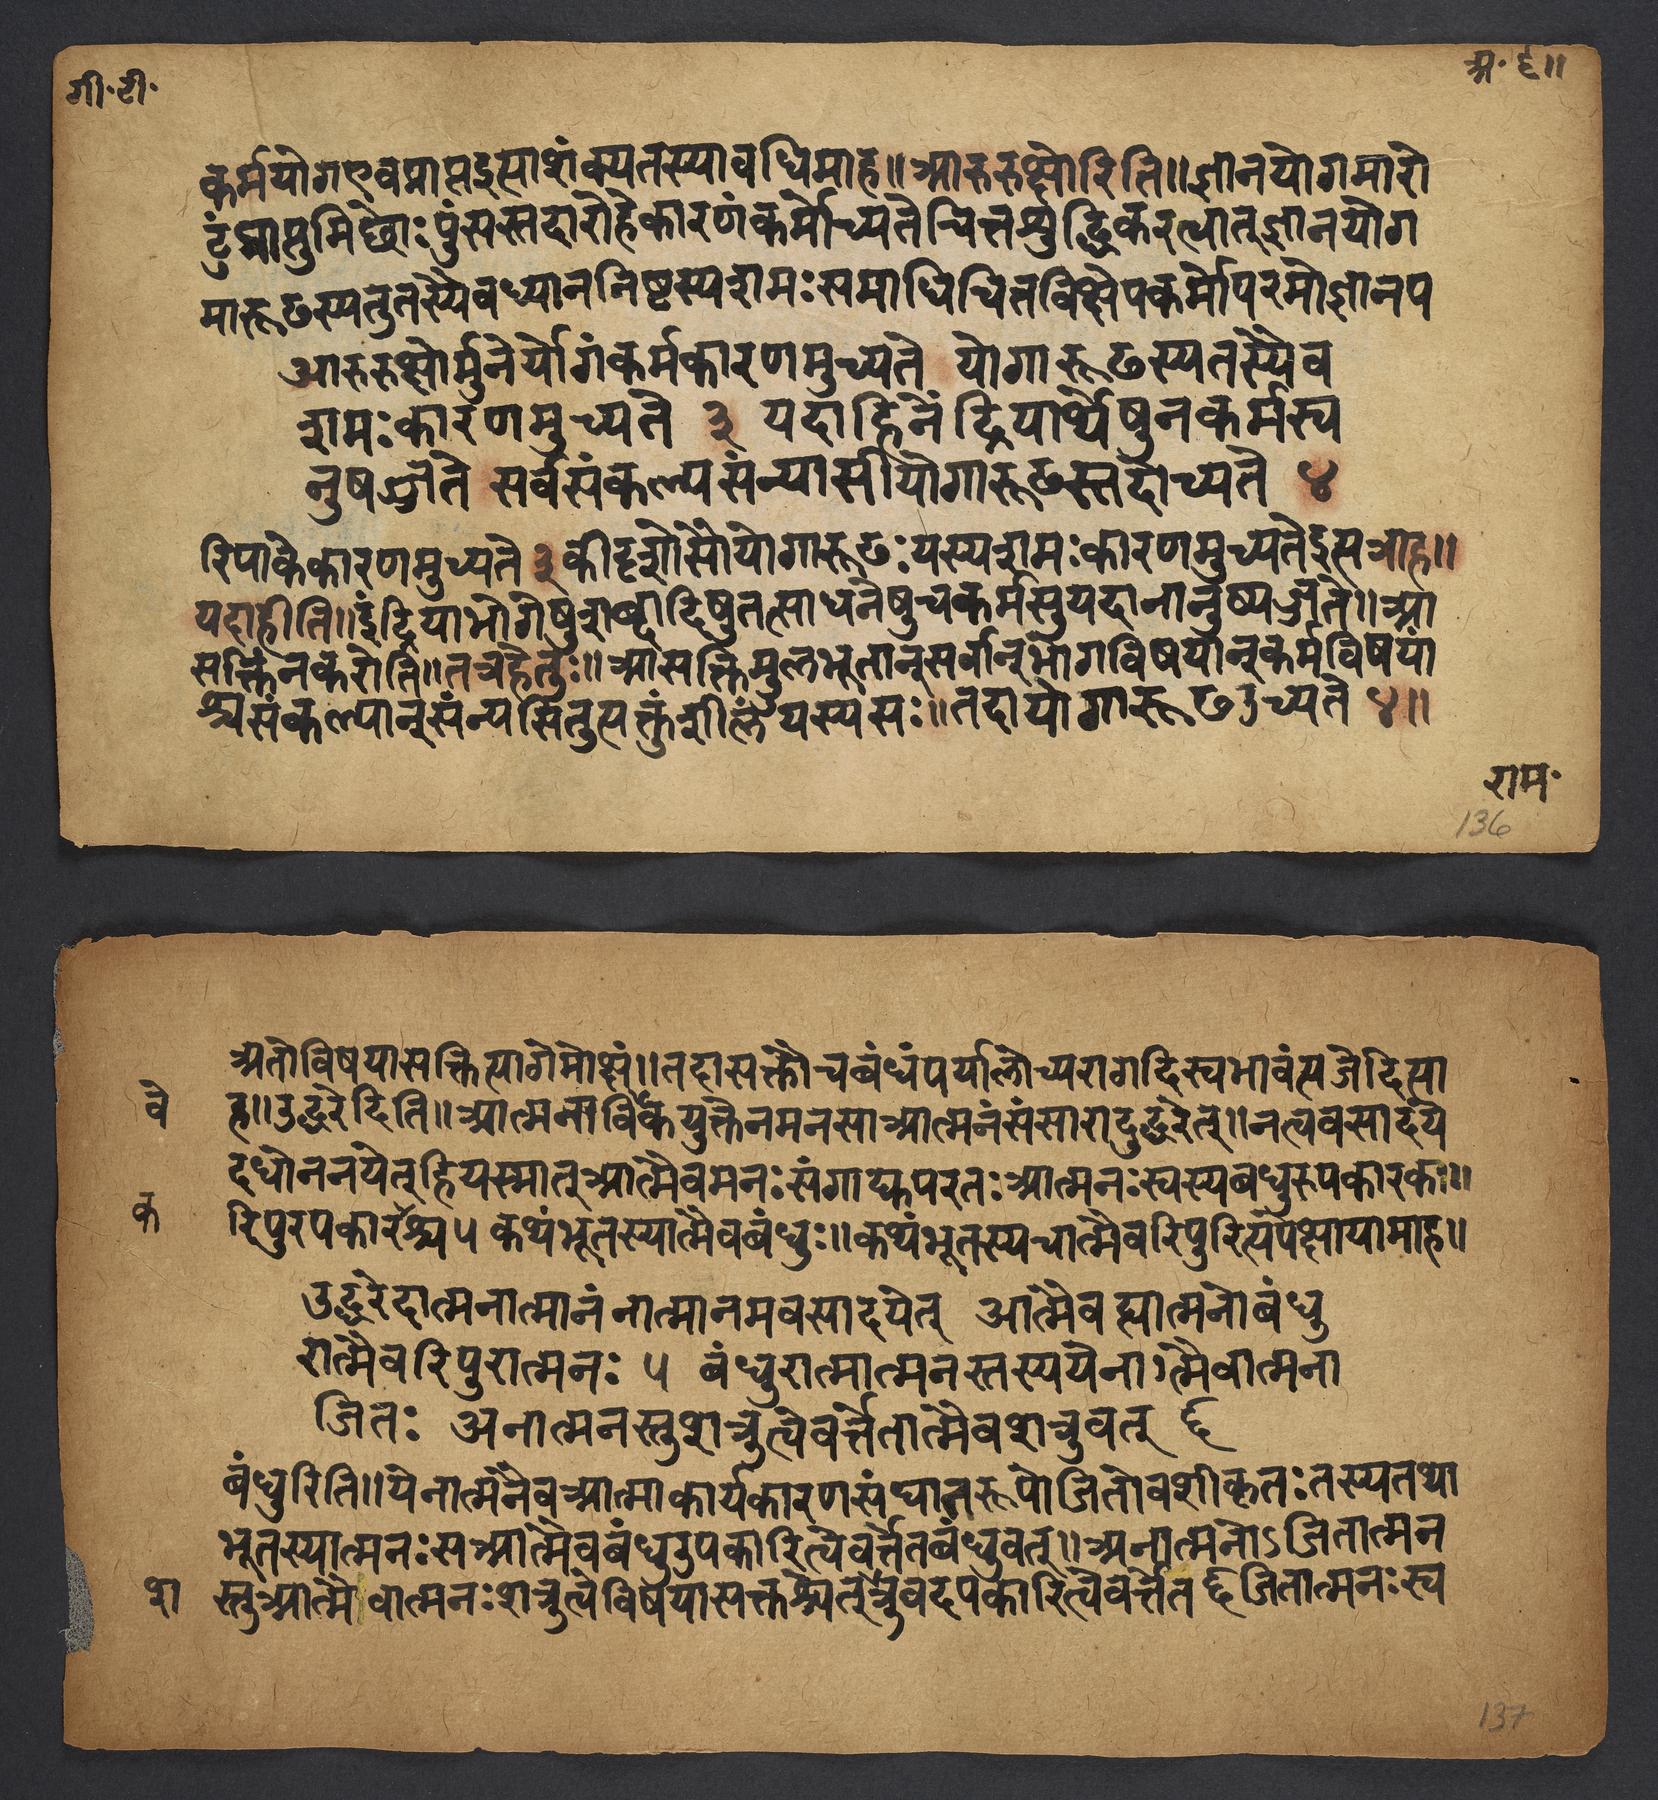 गी॰टी॰
अ॰ ६॥
कर्मयोगएवप्राप्तइत्याशंक्यतस्यावधिमाह॥आरुरुक्षोरिति॥ज्ञानयोगमारो
ढुंप्राप्तुमिछोःपुंसस्तदारोहेकारणंकर्मोच्यतेचित्तशुद्धिकरत्वात्ज्ञानयोग
मारूढस्यतुतस्यैवध्याननिष्टस्यशमःसमाधिचित्तविक्षेपकर्मोपरमोज्ञानप
आरुरुक्षोर्मुनेर्योगंकर्मकारणमुच्यते योगारूढस्यतस्यैव
शमःकारणमुच्यते ३ यदाहिनेंद्रियार्थेषुनकर्मस्व
नुषज्जते सर्वसंकल्पसंन्यासीयोगारूढस्तदोच्यते ४
रिपाकेकारणमुच्यते ३ कीदृशोसौयोगारूढःयस्यशमःकारणमुच्यतेइत्यत्राह॥
यदाहीति॥इंद्रियाभोगेषुशब्दादिषुतत्साधनेषुचकर्मसुयदानानुष्यज्जते॥आ
सक्तिंनकरोति॥तत्रहेतुः॥आसक्तिमुलभूतान्सर्वान्भोगविषयान्कर्मविषयां
श्चसंकल्पान्संन्यसितुत्यक्तुंशीलंयस्यसः॥तदायोगारूढउच्यते ४॥
राम॰
136
अतोविषयासक्तित्यागेमोक्षं॥तदासक्तौचबंधंपर्यालोच्यरागदिस्वभावंत्यजेदित्या
वे
ह॥उद्धरेदिति॥आत्मनाविकेयुक्तेनमनसाआत्मनंसंसारादुद्धरेत्॥नत्ववसादये
दधोननयेत्हियस्मात्आत्मैवमनःसंगाद्युपरतःआत्मनःस्वस्यबंधुरुपकारकः॥
क
रिपुरपकारश्च ५ कथंभूतस्यात्मैवबंधुः॥कथंभूतस्यचात्मैवरिपुरित्यपेक्षायामाह॥
उद्धरेदात्मनात्मानंनात्मानमवसादयेत् आत्मैवह्यात्मनोबंधु
रात्मैवरिपुरात्मनः ५ बंधुरात्मात्मनस्तस्ययेनात्मैवात्मना
जितः अनात्मनस्तुशत्रुत्वेवर्त्तेतात्मैवशत्रुवत् ६
बंधुरिति॥येनात्मनैवआत्माकार्यकारणसंघातरूपोजितोवशीकृतःतस्यतथा
भूतस्यात्मनःसआत्मैवबंधुउपकारित्वेवर्त्तेतबंधुवत्॥अनात्मनोऽजितात्मन
श
स्तुआत्मैवात्मनःशत्रुत्वेविषयासक्तश्चेत्त्रुवदपकारित्वेवर्त्तेत ६ जितात्मनःस्व
137